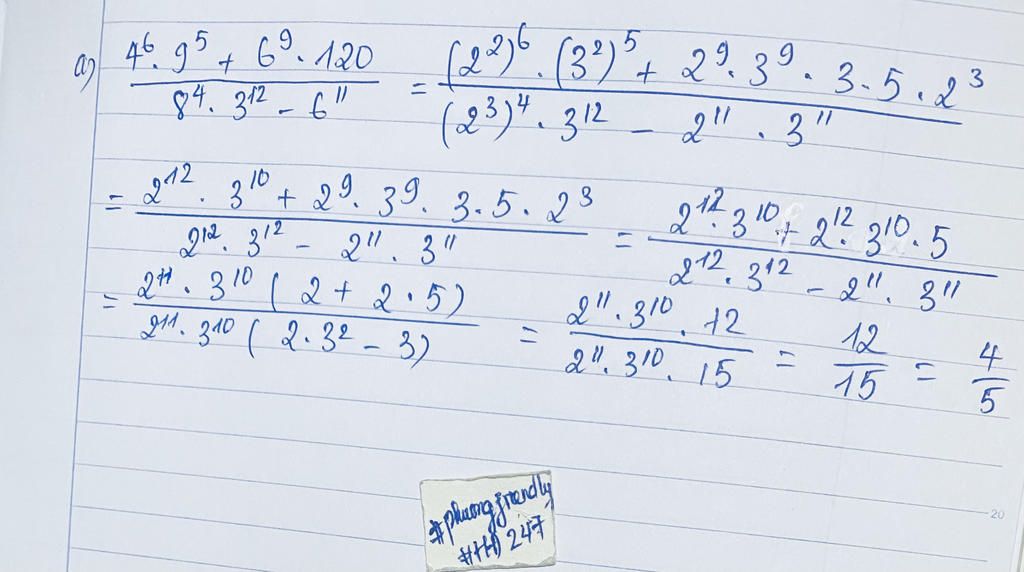 a) \frac{4^6 . 9^5 + 6^9 . 120}{8^4 . 3^{12} - 6^{11}} = \frac{(2^2)^6 . (3^2)^5 + 2^9 . 3^9 . 3 . 5 . 2^3}{(2^3)^4 . 3^{12} - 2^{11} . 3^{11}}
= \frac{2^{12} . 3^{10} + 2^9 . 3^9 . 3 . 5 . 2^3}{2^{12} . 3^{12} - 2^{11} . 3^{11}} = \frac{2^{12} . 3^{10} + 2^{12} . 3^{10} . 5}{2^{12} . 3^{12} - 2^{11} . 3^{11}}
= \frac{2^{11} . 3^{10} (2 + 2 . 5)}{2^{11} . 3^{10} (2 . 3^2 - 3)} = \frac{2^{11} . 3^{10} . 12}{2^{11} . 3^{10} . 15} = \frac{12}{15} = \frac{4}{5}
20
#phuongfriendly
247